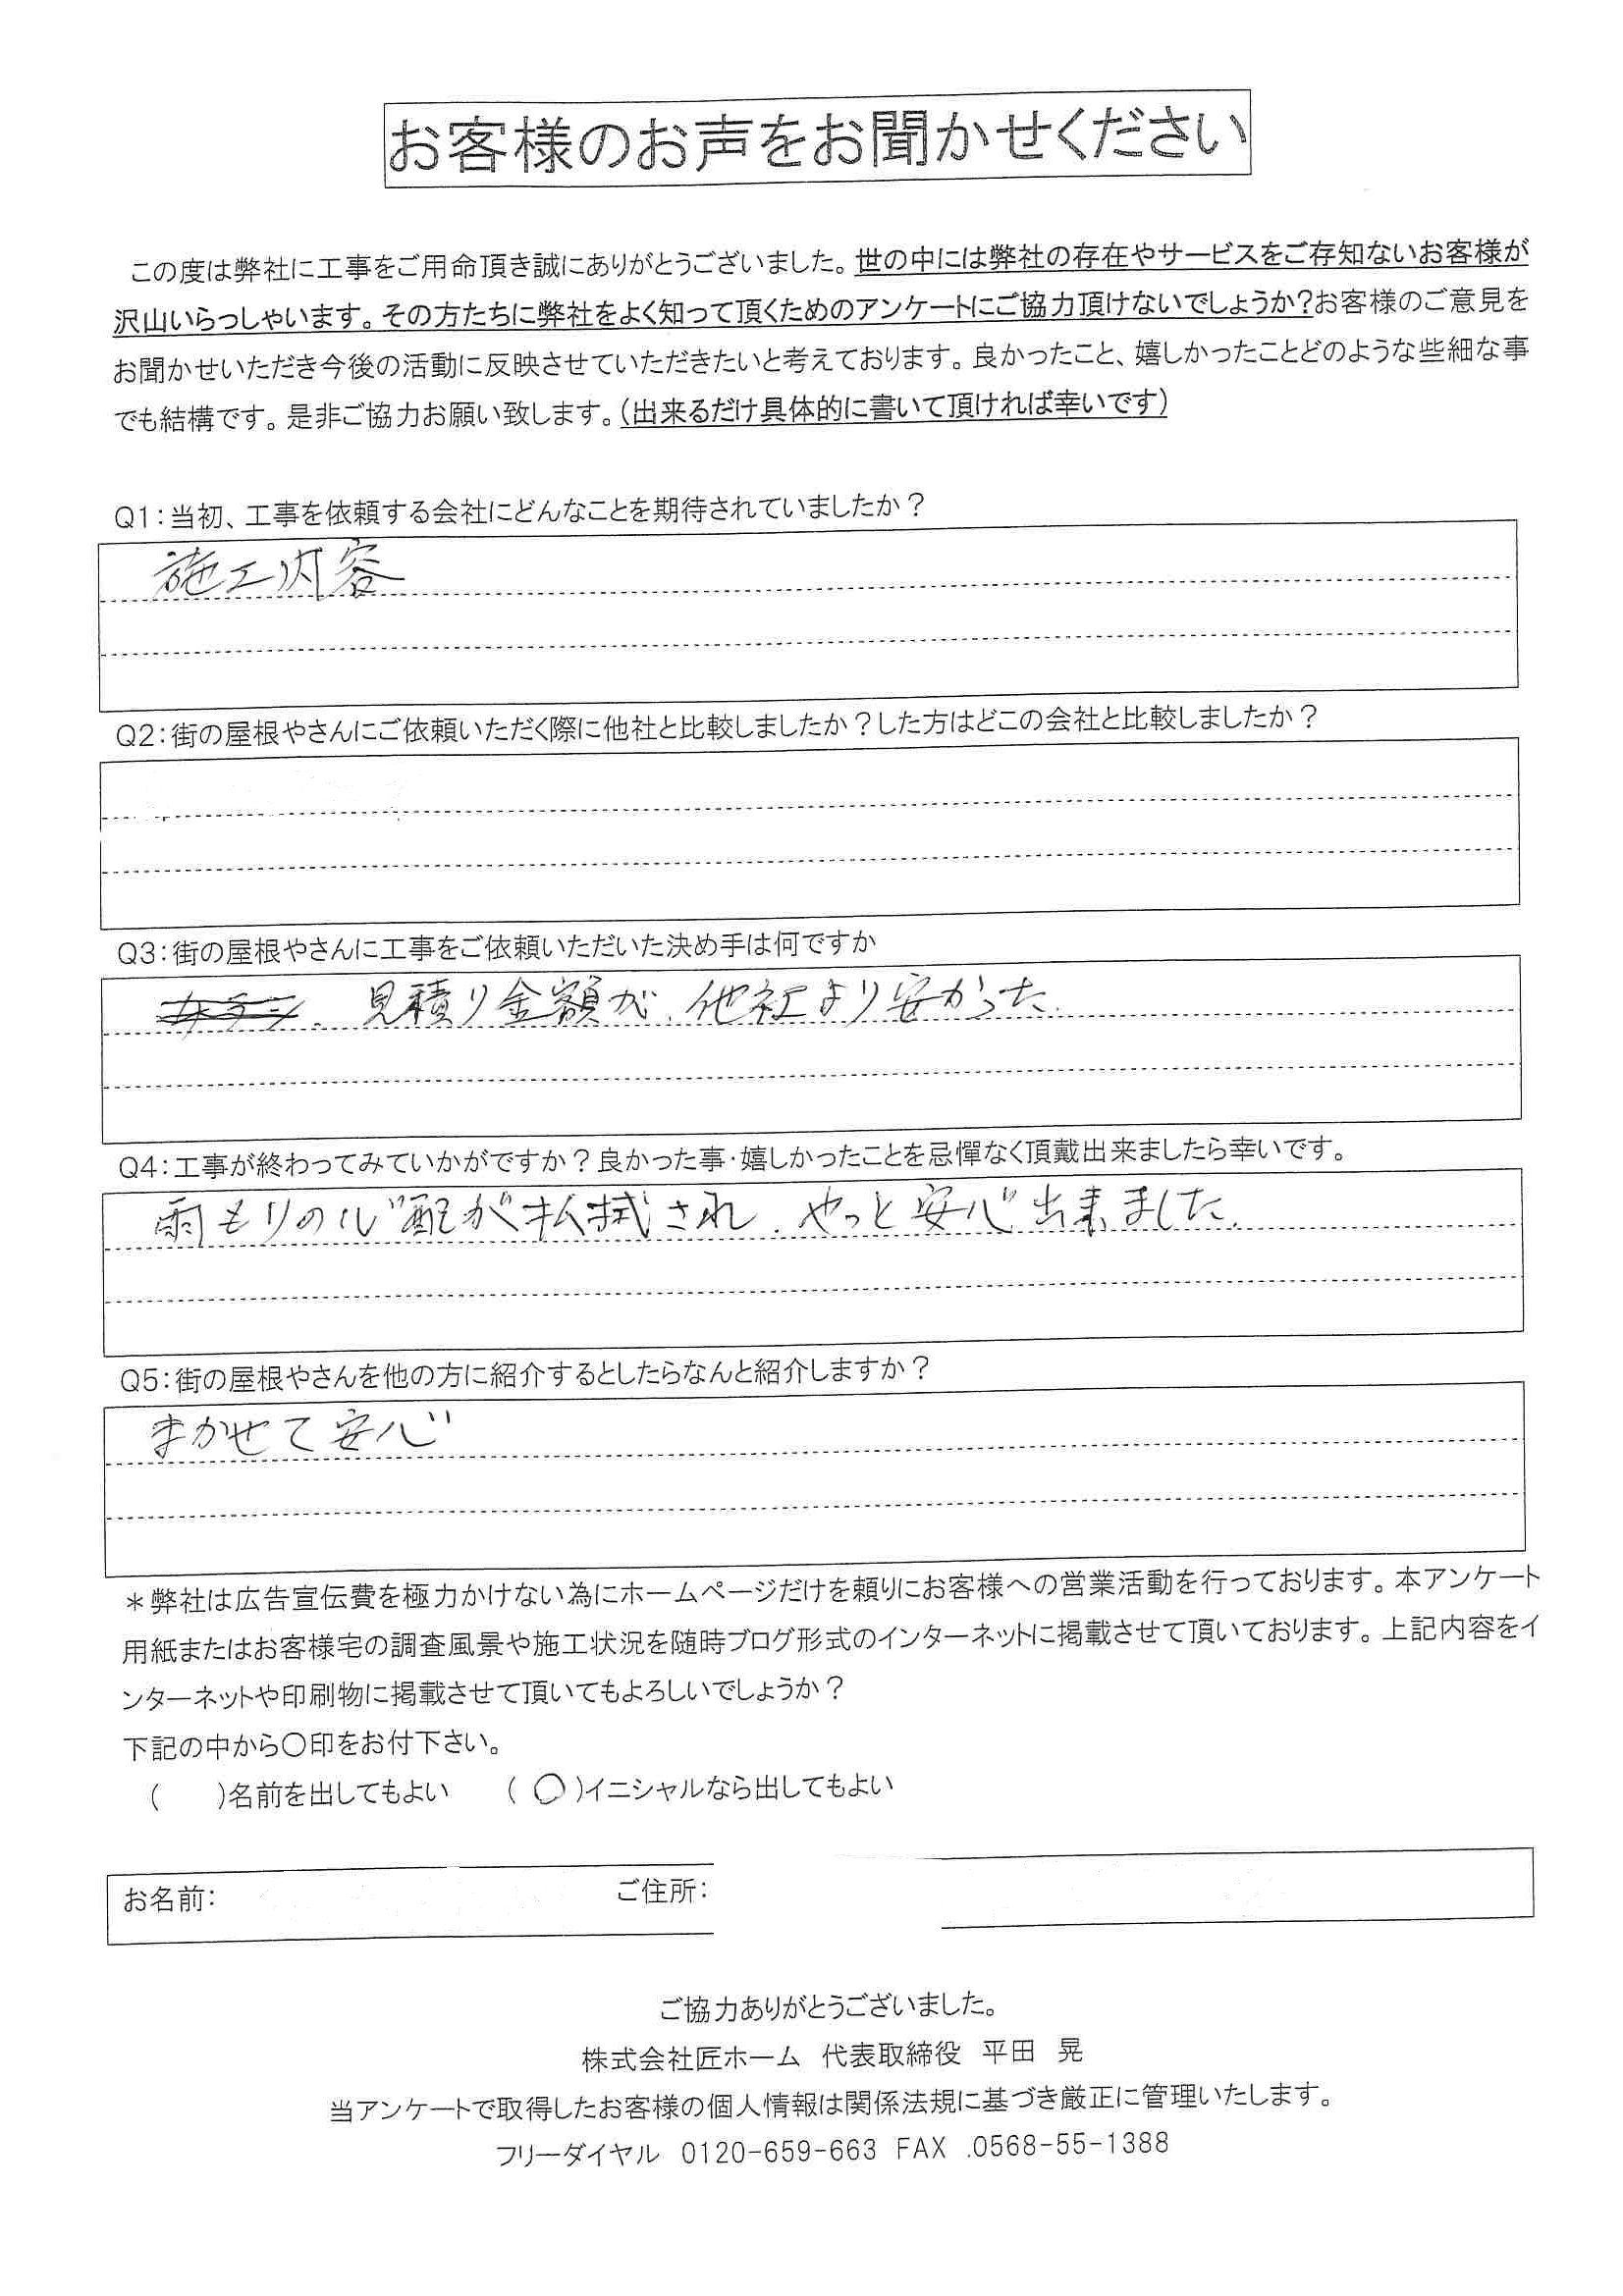 お客様のお声をお聞かせください
この度は弊社に工事をご用命頂き誠にありがとうございました。世の中には弊社の存在やサービスをご存知ないお客様が
沢山いらっしゃいます。その方たちに弊社をよく知って頂くためのアンケートにご協力頂けないでしょうか?お客様のご意見を
お聞かせいただき今後の活動に反映させていただきたいと考えております。良かったこと、嬉しかったことどのような些細な事
でも結構です。是非ご協力お願い致します。(出来るだけ具体的に書いて頂ければ幸いです)
Q1:当初、工事を依頼する会社にどんなことを期待されていましたか?
施工内容
Q2:街の屋根やさんにご依頼いただく際に他社と比較しましたか?した方はどこの会社と比較しましたか?
Q3:街の屋根やさんに工事をご依頼いただいた決め手は何ですか
見積り金額が、他社より安かった。
Q4:工事が終わってみていかがですか?良かった事・嬉しかったことを忌憚なく頂戴出来ましたら幸いです。
雨もりの心配が払拭され、やっと安心出来ました。
Q5:街の屋根やさんを他の方に紹介するとしたらなんと紹介しますか?
まかせて安心
＊弊社は広告宣伝費を極力かけない為にホームページだけを頼りにお客様への営業活動を行っております。本アンケート
用紙またはお客様宅の調査風景や施工状況を随時ブログ形式のインターネットに掲載させて頂いております。上記内容をイ
ンターネットや印刷物に掲載させて頂いてもよろしいでしょうか?
下記の中から〇印をお付下さい。
(　　)名前を出してもよい　　(〇)イニシャルなら出してもよい
お名前:　ご住所:
ご協力ありがとうございました。
株式会社匠ホーム　代表取締役　平田　晃
当アンケートで取得したお客様の個人情報は関係法規に基づき厳正に管理いたします。
フリーダイヤル　0120-659-663 FAX .0568-55-1388